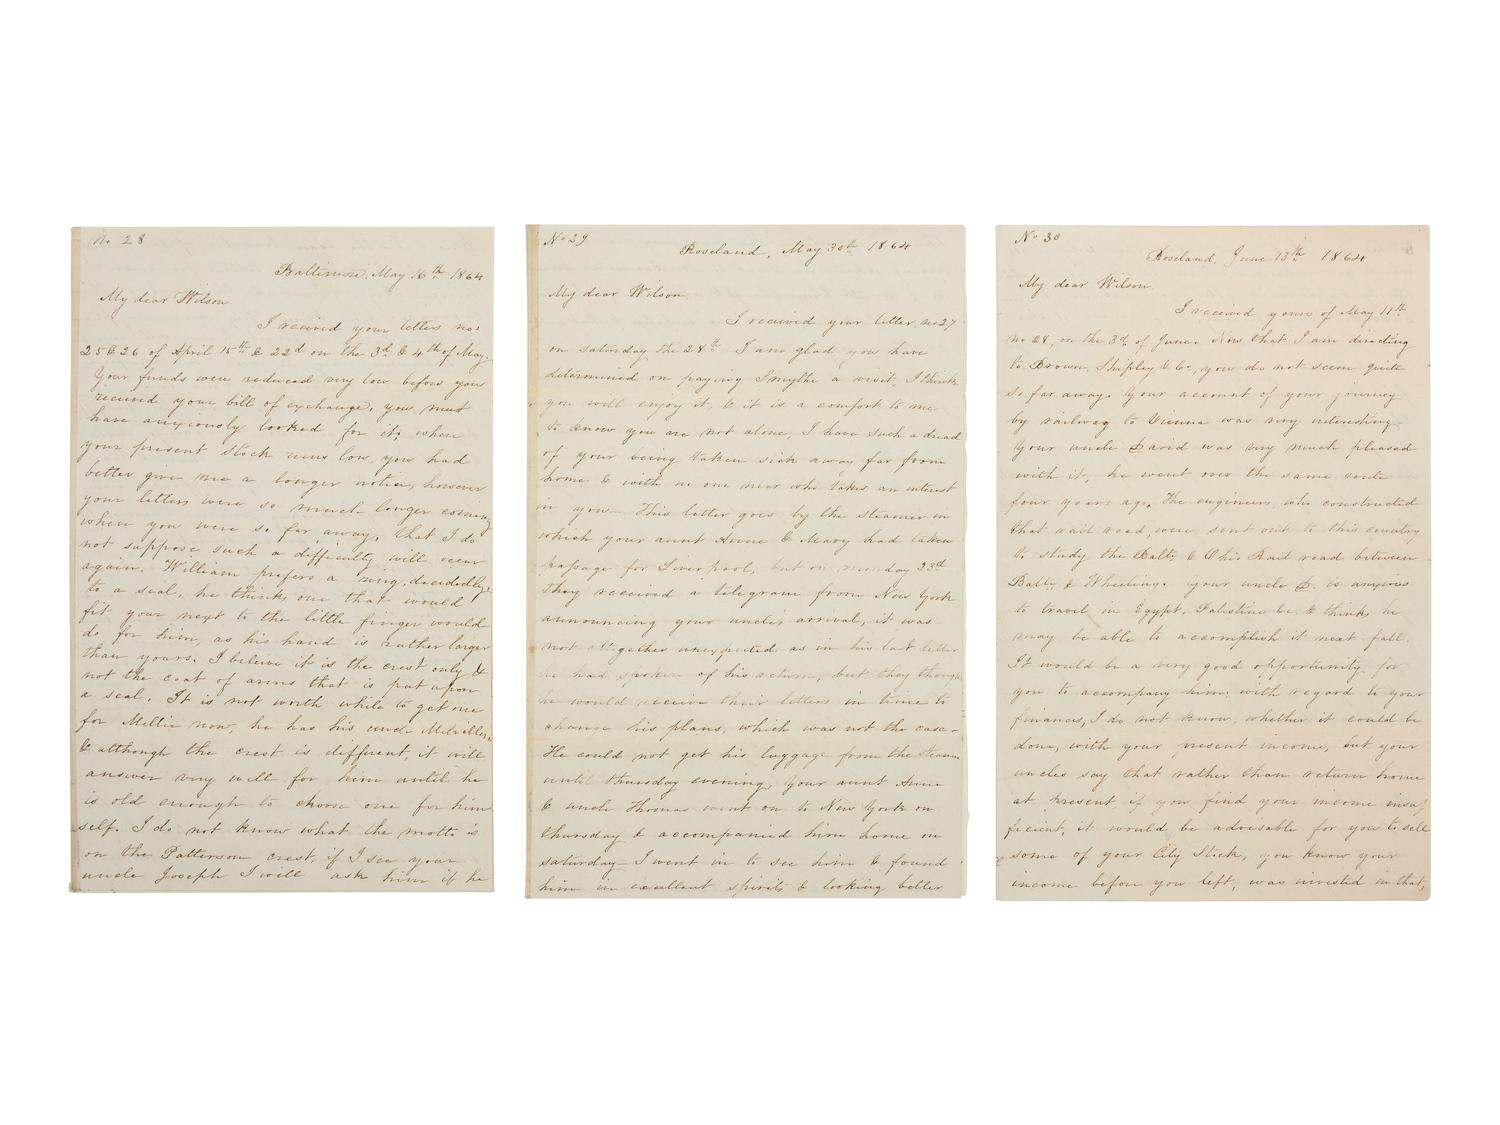 No 28
Baltimore, May 16th 1864
My dear Wilson
I recived your letters nos
25 & 26 of April 15th & 22d on the 3d & 4th of May.
Your funds were reduced very low before you
recived your bill of exchange, you must
have anxiously looked for it, when
your present stock runs low, you had
better give me a longer notice, however
your letters were so much longer coming
when you were so far away, that I do
not suppose such a difficulty will occur
again. William prefers a ring, decidedly,
to a seal, he thinks one that would
fit your next to the little finger would
do for him, as his hand is rather larger
than yours. I beleive it is the crest only &
not the coat of arms that is put upon
a seal. It is not worth while to get one
for now, he has his uncle
& although the crest is different, it will
answer very well for him until he
is old enough to choose one for him
self. I do not know what the motto is
on the Patterson crest, if I see your
uncle Joseph I will ask him if he
No 29
Roseland, May 30th 1864
My dear Wilson.
I received your letter, no 27
on saturday the 28th I am glad you have
determined on paying Smythe a visit, I think
you will enjoy it, & it is a comfort to me
to know you are not alone, I have such a dread
of your being taken sick away far from
home & with no one near who takes an interest
in you. This letter goes by the steamer in
which your aunt Anne & Mary had taken
passage for Liverpool, but on monday 23d
They received a telegram from New York
announcing your uncles arrival, it was
not altogether unexpected as in his last letter
he had spoken of his return, but they though
he would receive their letters in time to
change his plans, which was not the case.
He could not get his luggage from the steam
until thursday evening, Your aunt Anne
& uncle Thomas went on to New York on
thursday & accompanied him home on
saturday I went in to see him & found
him in excellent spirits & looking better
No 30
Roseland, June 13th 1864
My dear Wilson.
I received yours of May 11th
no 28, on the 3d of June. Now that I am directing
to Brown, Shipley & Co, you do not seem quite
so far away. Your account of your journey
by railway to Vienna was very interesting.
Your uncle David was very much pleased
with it, he went over the same route
four years ago. The engineers, who constructed
that rail road, were sent out to this country
to study the Balto & Ohio Rail road between
Balto & Wheeling. Your uncle D. is anxious
to travel in Egypt, Palestine &c. & thinks he
may be able to accomplish it next fall.
It would be a very good opportunity for
you to accompany him; with regard to your
finances, I do not know, whether it could be
done, with your present income, but your
uncles say that rather than return home
at present, if you find your income insuf
ficient, it would be advisable for you to sell
some of your City Stock, you know your
income before you left, was invested in that,